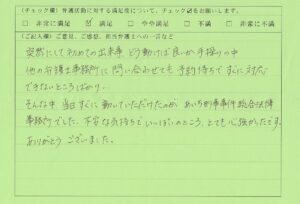 (チェック欄) 弁護活動に対する満足度について、チェック☑をお願いします。
□ 非常に満足 ☑ 満足 □ やや満足 □ 不満 □ 非常に不満
(ご記入欄) ご意見、ご感想、担当弁護士への一言など
突然にして初めての出来事、どう動けば良いか手探りの中
他の弁護士事務所に問い合わせても予約待ちですぐに対応
できないところばかり…
そんな中、当日すぐに動いていただけたのが、あいち刑事事件総合法律
事務所でした。不安な気持ちでいっぱいのところ、とても心強かったです。
ありがとうございました。